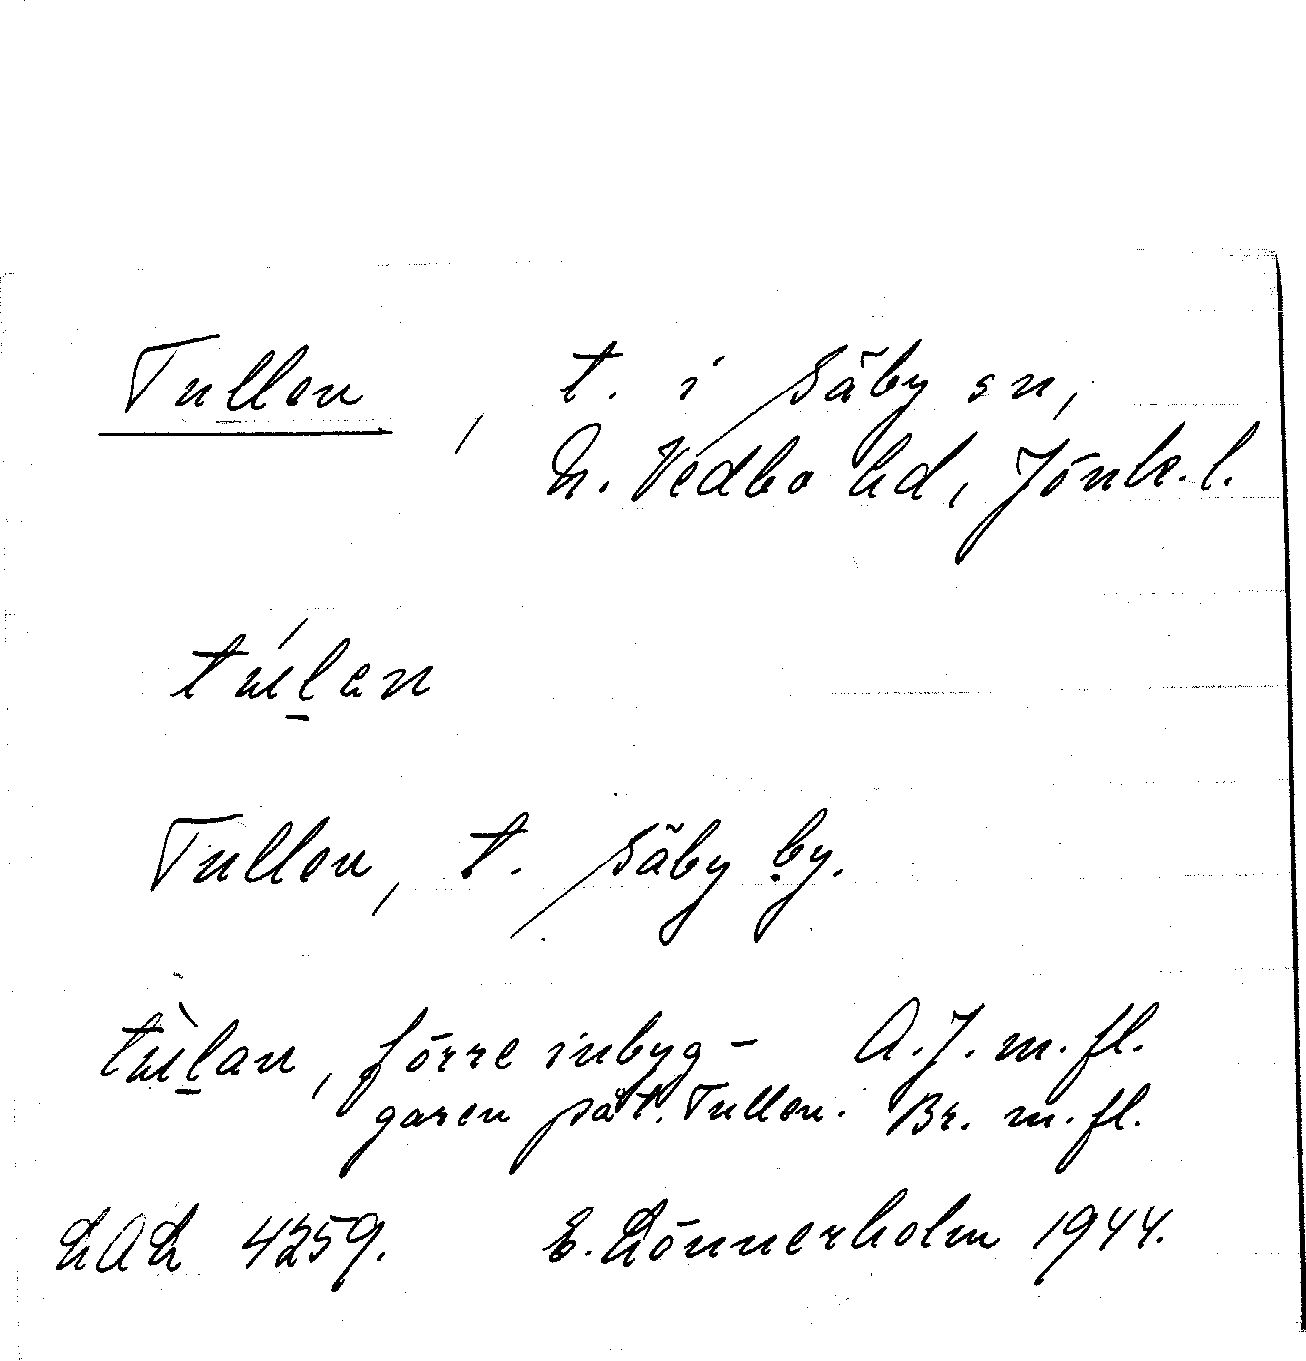 Tullen, t. i Säby sn,
N. Vedbo hd, Jönk. l.
túl̲en
Tullen, t. Säby by.
tùl̲an, förre inbyg- A.J. m. fl.
garen på t. Tullen. Br. m. fl.
LAL 4259. E. Lönnerholm 1944.